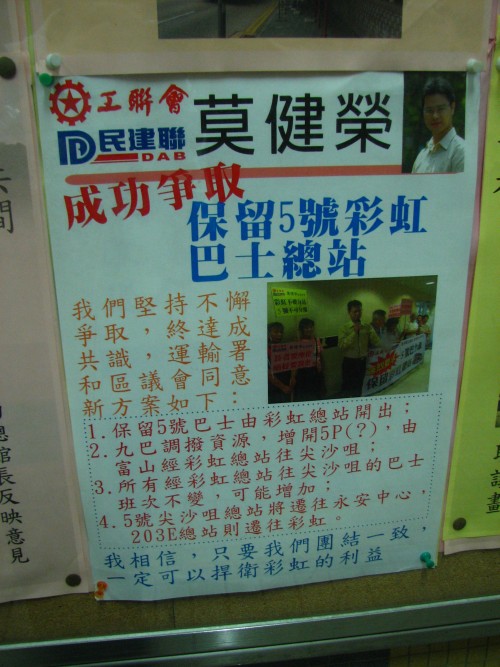 工聯會
民建聯
DAB
莫健榮
成功爭取
保留5號彩虹
巴士總站
我們堅持不懈
爭取，終達成
共識，運輸署
和區議會同意
新方案如下：
1. 保留5號巴士由彩虹總站開出；
2. 九巴調撥資源，增開5P(?)，由
富山經彩虹總站往尖沙咀；
3. 所有經彩虹總站往尖沙咀的巴士
班次不變，可能增加；
4. 5號尖沙咀總站將遷往永安中心，
203E總站則遷往彩虹。
我相信，只要我們團結一致，
一定可以捍衛彩虹的利益